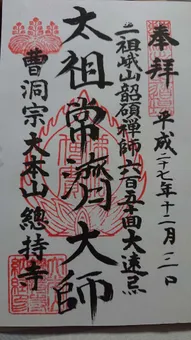 奉拝
平成二十七年十二月二日
二祖峨山韶碩禅師六百五十回大遠忌
太祖常濟大師
曹洞宗大本山總持寺